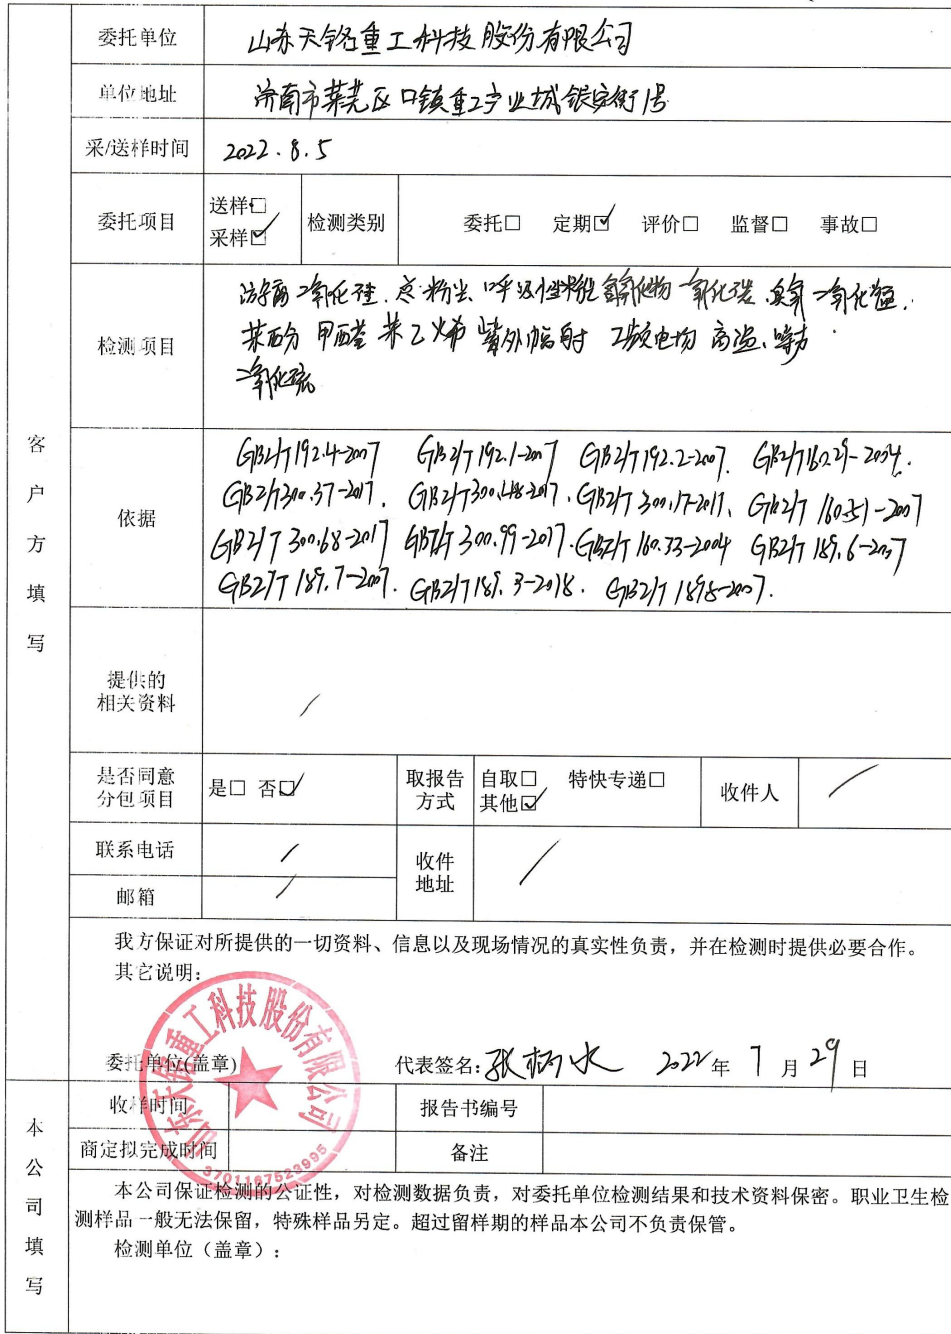 客户方填写
委托单位 山东天铭重工科技股份有限公司
单位地址 济南市莱芜区口镇重工产业城银安街1号
采/送样时间 2022.8.5
委托项目 送样□ 采样☑ 检测类别 委托□ 定期☑ 评价□ 监督□ 事故□
检测项目 游离二氧化硅、总粉尘、呼吸性粉尘 氮氧化物 一氧化碳、臭氧、二氧化锰、
苯酚 甲醛 苯乙烯 紫外辐射 工频电场 高温、噪声
二氧化硫
依据 GBZ/T192.4-2007 GBZ/T192.1-2007 GBZ/T192.2-2007. GBZ/T160.29-2004.
GBZ/T300.37-2017. GBZ/T300.48-2017. GBZ/T300.17-2017、GBZ/T 160.51-2007
GBZ/T 300.68-2017 GBZ/T 300.99-2017. GBZ/T 160.33-2004 GBZ/T 189.6-2007
GBZ/T 189.7-2007. GBZ/T189.3-2018. GBZ/T 189.8-2007.
提供的相关资料 /
是否同意分包项目 是□ 否☑ 取报告方式 自取□ 特快专递□ 其他☑ 收件人 /
联系电话 / 收件地址 /
邮箱 /
我方保证对所提供的一切资料、信息以及现场情况的真实性负责，并在检测时提供必要合作。
其它说明：
委托单位(盖章) 代表签名: 2022 年 7 月 29 日
山东天铭重工科技股份有限公司
3701167523995
本公司填写
收样时间 报告书编号
商定拟完成时间 备注
本公司保证检测的公证性，对检测数据负责，对委托单位检测结果和技术资料保密。职业卫生检
测样品一般无法保留，特殊样品另定。超过留样期的样品本公司不负责保管。
检测单位（盖章）：